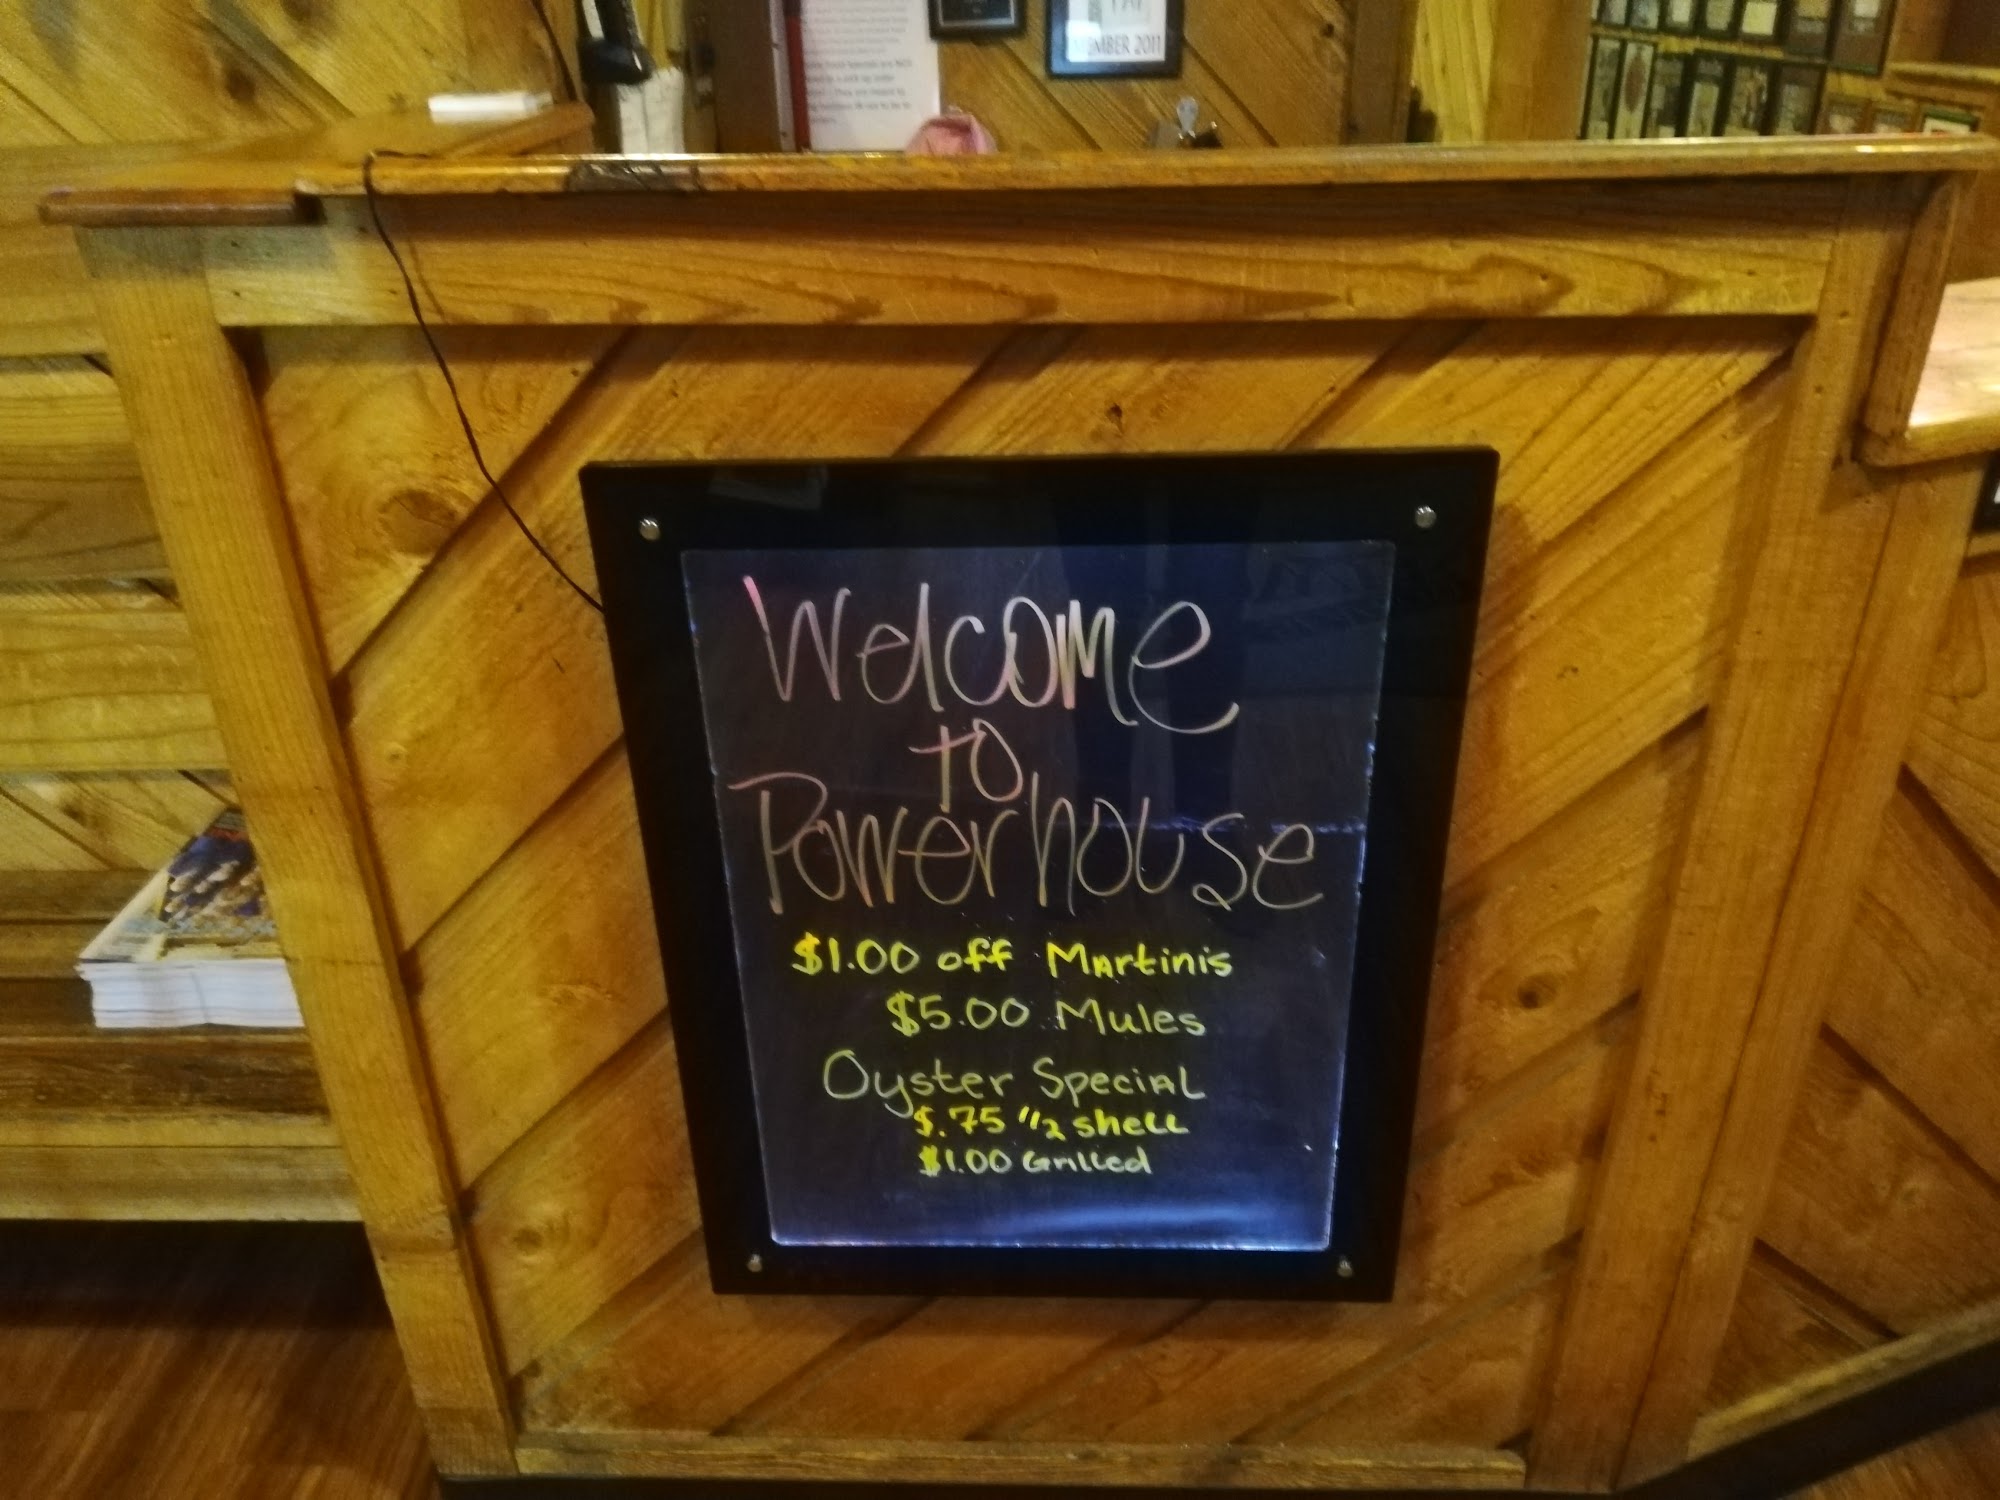 MBER 2011
Welcome
to
Powerhouse
$1.00 off Martinis
$5.00 Mules
Oyster Special
$.75 1/2 shell
$1.00 Grilled